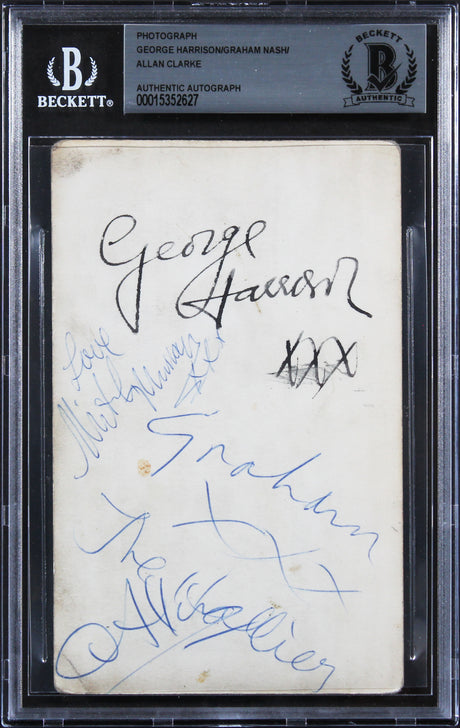 BECKETT®
PHOTOGRAPH
GEORGE HARRISON/GRAHAM NASH/
ALLAN CLARKE
AUTHENTIC AUTOGRAPH
00015352627
BECKETT
B
AUTHENTIC
George
Harrison
xxx
love
xxx
Graham
xxx
The
Hollies